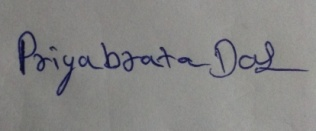 Priyabrata Das